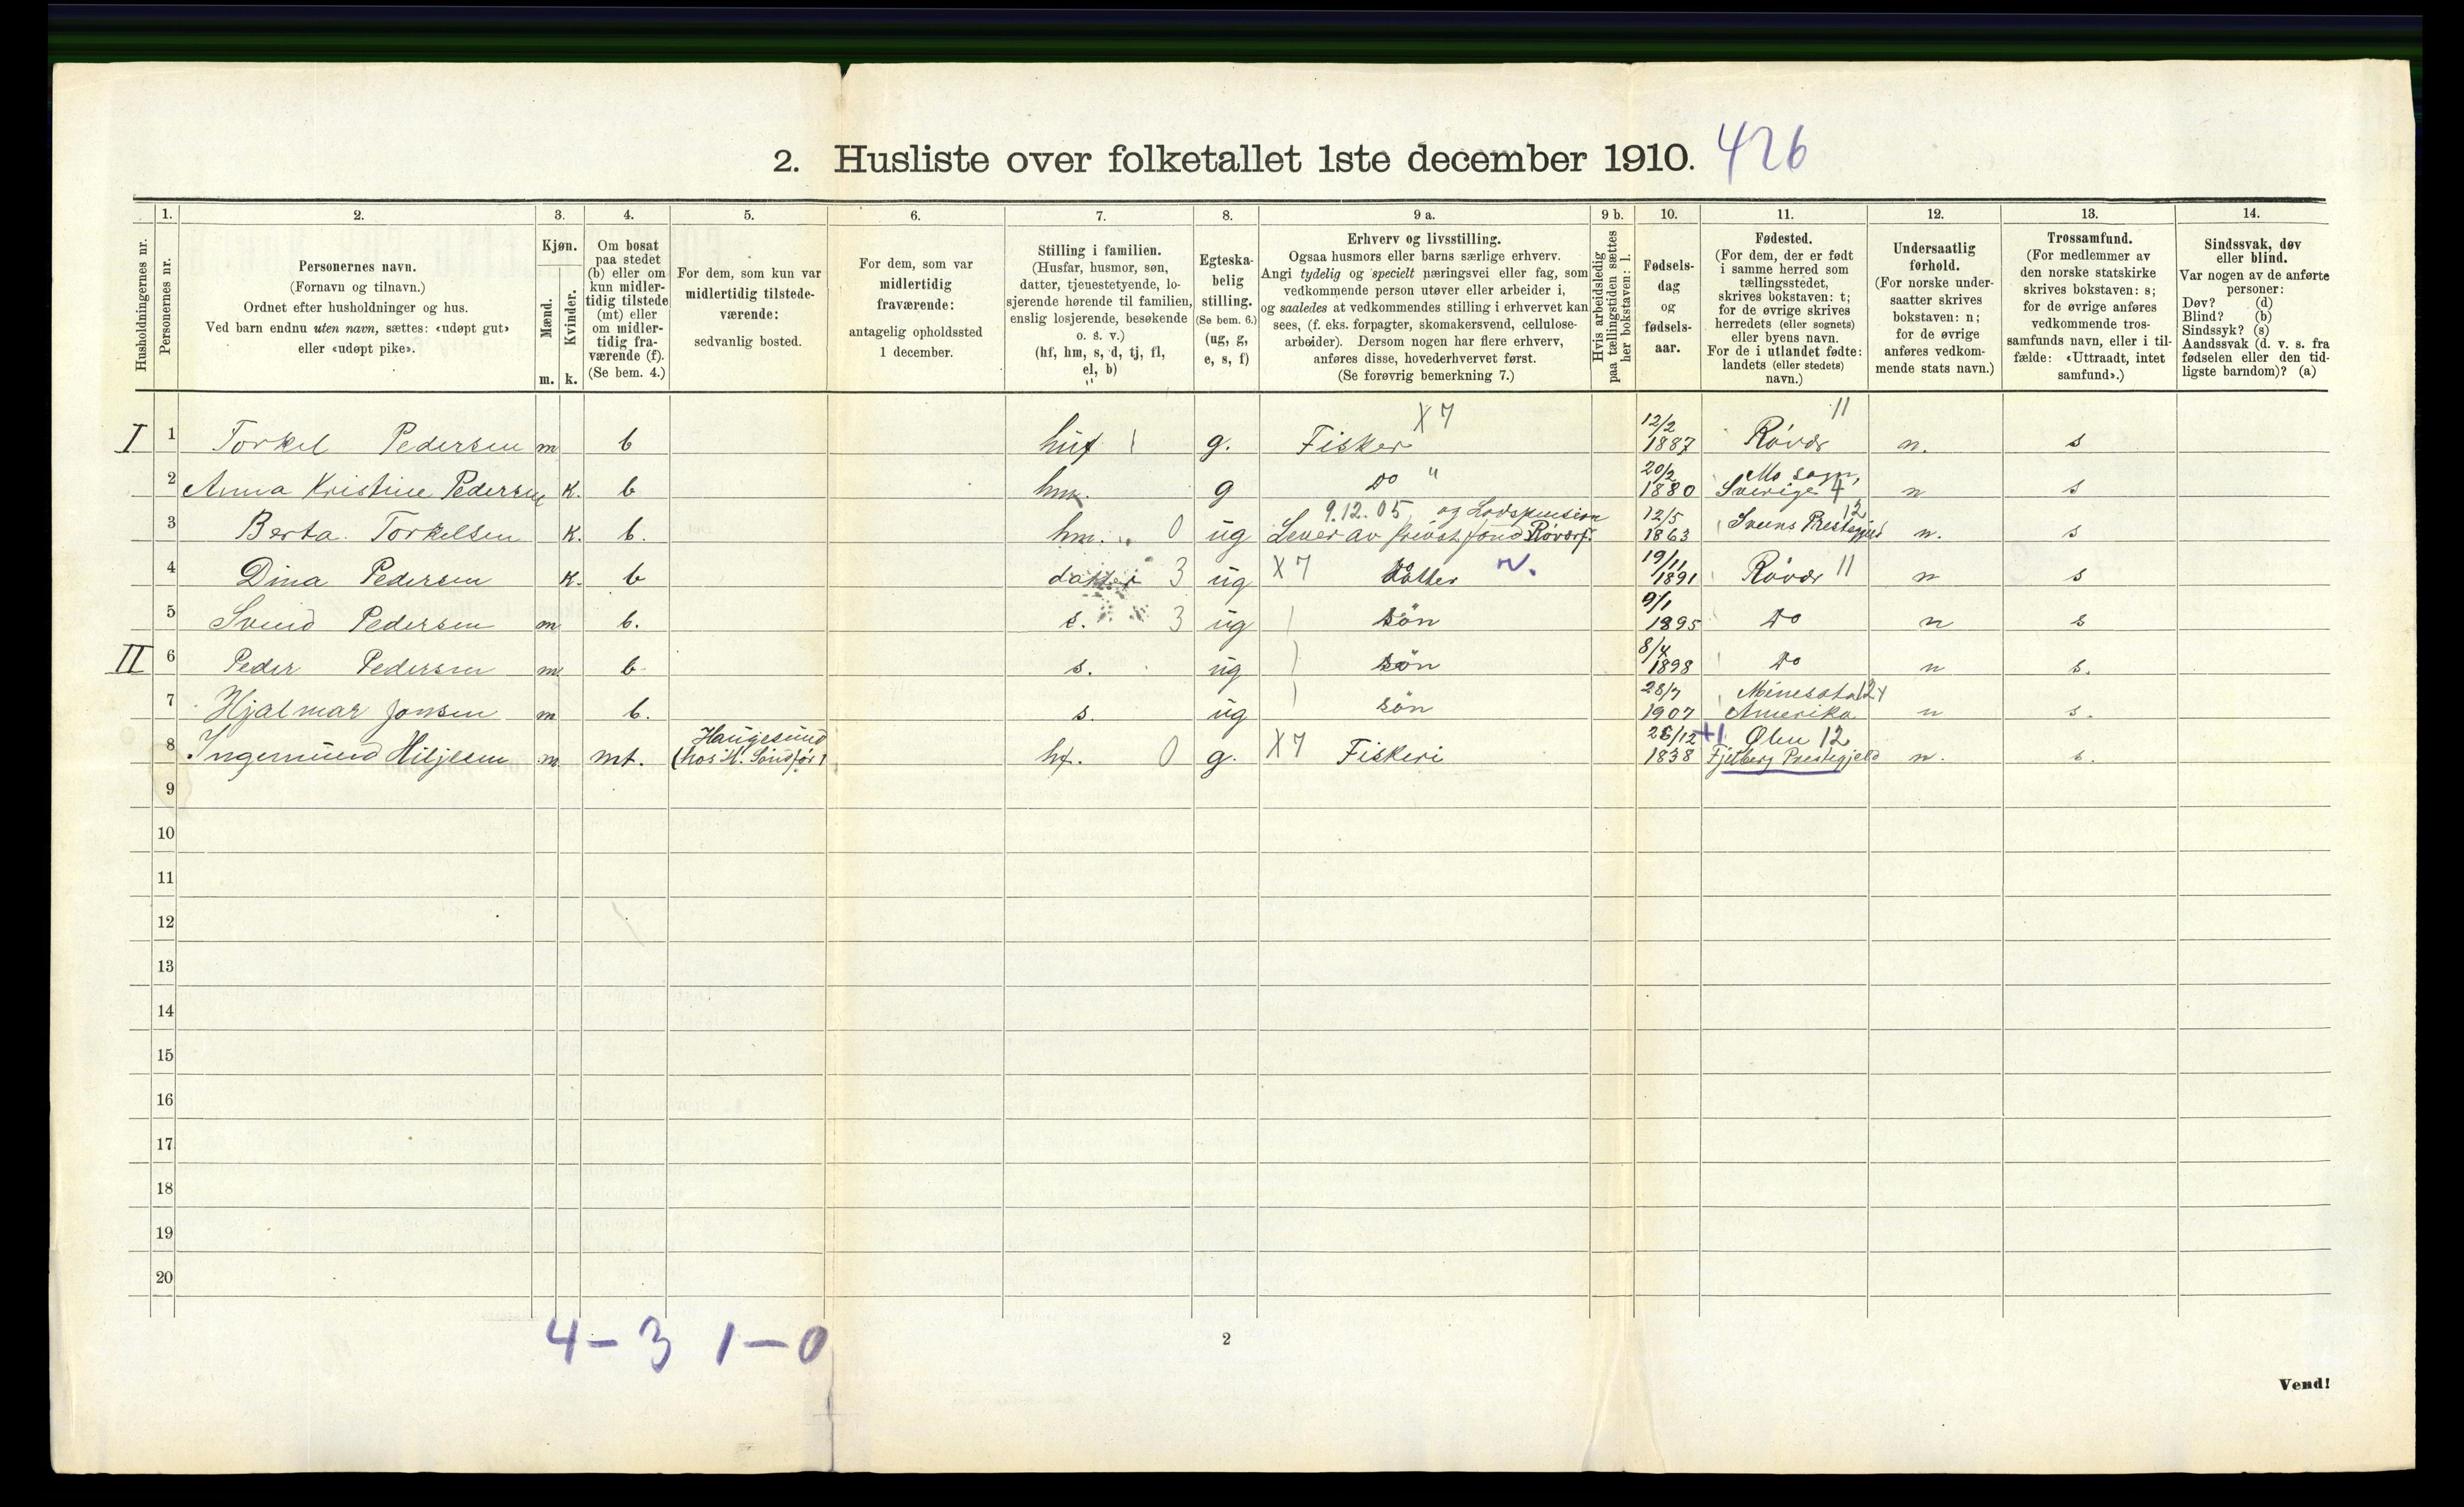 2. Husliste over folketallet 1ste december 1910. 426
1. 2. 3. 4. 5. 6. 7. 8. 9 a. 9 b. 10. 11. 12. 13. 14.
Husholdningernes nr.
Personernes nr.
Personernes navn.
(Fornavn og tilnavn.)
Ordnet efter husholdninger og hus.
Ved barn endnu uten navn, sættes: «udøpt gut»
eller «udøpt pike».
Kjøn.
Mænd.
Kvinder.
m. k.
Om bosat
paa stedet
(b) eller om
kun midler-
tidig tilstede
(mt) eller
om midler-
tidig fra-
værende (f).
(Se bem. 4.)
For dem, som kun var
midlertidig tilstede-
værende:
sedvanlig bosted.
For dem, som var
midlertidig
fraværende:
antagelig opholdssted
1 december.
Stilling i familien.
(Husfar, husmor, søn,
datter, tjenestetyende, lo-
sjerende hørende til familien,
enslig losjerende, besøkende
o. s. v.)
(hf, hm, s, d, tj, fl,
el, b)
Egteska-
belig
stilling.
(Se bem. 6.)
(ug, g,
e, s, f)
Erhverv og livsstilling.
Ogsaa husmors eller barns særlige erhverv.
Angi tydelig og specielt næringsvei eller fag, som
vedkommende person utøver eller arbeider i,
og saaledes at vedkommendes stilling i erhvervet kan
sees, (f. eks. forpagter, skomakersvend, cellulose-
arbeider). Dersom nogen har flere erhverv,
anføres disse, hovederhvervet først.
(Se forøvrig bemerkning 7.)
Hvis arbeidsledig
paa tællingstiden sættes
her bokstaven: l.
Fødsels-
dag
og
fødsels-
aar.
Fødested.
(For dem, der er født
i samme herred som
tællingsstedet,
skrives bokstaven: t;
for de øvrige skrives
herredets (eller sognets)
eller byens navn.
For de i utlandet fødte:
landets (eller stedets)
navn.)
Undersaatlig
forhold.
(For norske under-
saatter skrives
bokstaven: n;
for de øvrige
anføres vedkom-
mende stats navn.)
Trossamfund.
(For medlemmer av
den norske statskirke
skrives bokstaven: s;
for de øvrige anføres
vedkommende tros-
samfunds navn, eller i til-
fælde: «Uttraadt, intet
samfund».)
Sindssvak, døv
eller blind.
Var nogen av de anførte
personer:
Døv? (d)
Blind? (b)
Sindssyk? (s)
Aandssvak (d. v. s. fra
fødselen eller den tid-
ligste barndom)? (a)
X 7 12/2 11
I 1 Torkel Pedersen m b huf 1 g. Fisker 1887 Røvær n. s
20/2 Mo sogn,
2 Anna Kristine Pedersen K. b hm. g do " 1880 Sverige 4 n s
9.12.05 og Lodspension 12/5 12
3 Berta Torkelsen K. b. hm. 0 ug Lever av privat fond Røværf. 1863 Sveens Prestegjeld n. s
19/11
4 Dina Pedersen K. b datter 3 ug X 7 datter 1891 Røvær 11 n s
9/1
5 Svend Pedersen m b. s. 3 ug søn 1895 do n s
8/4
II 6 Peder Pedersen m b s. ug søn 1898 do n s.
28/7 Minesota 124
7 Hjalmar Jonsen m b. s. ug søn 1907 Amerika n s.
Haugesund 26/12 +1 Ølen 12
8 Ingemund Hiljesen m mt. hf. 0 g. X 7 Fiskeri 1838 Fjelberg Prestegjeld n. s.
9
10
11
12
13
14
15
16
17
18
19
20
4 - 3 1 - 0
2
Vend!